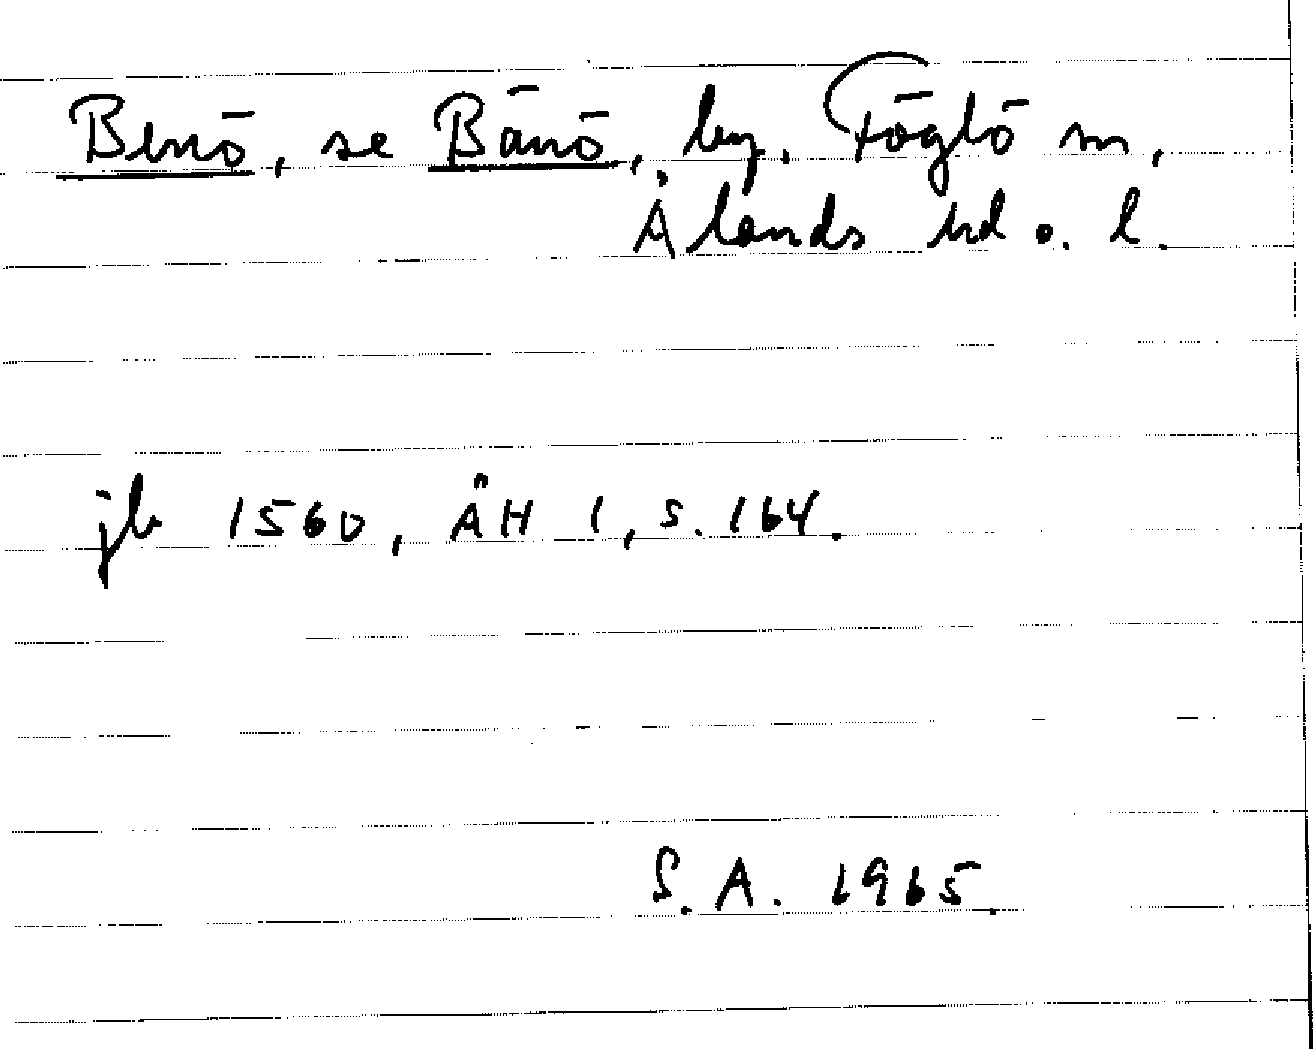 Benö, se Bänö, by, Föglö sn,
Ålands hd o. l.
jb 1560, ÅH 1, s. 164.
S.A. 1965.